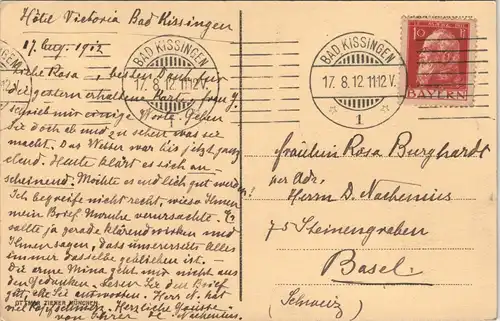 Hôtel Victoria Bad Kissingen
17. Aug. 1912
Liebe Rosa, besten Dank für
die gestern erhaltene Karte. Frau J.
schrieb mir einige Worte. Gehen
Sie doch ab und zu sehen was sie
macht. Das Wetter war bis jetzt ganz
elend. Heute klärt es sich an-
scheinend. Möchte es endlich gut werden!
Ich begreife nicht recht, wieso Ihnen
mein Brief Unruhe verursachte. Er
sollte ja gerade klärend wirken und
Ihnen sagen, dass unsererseits Alles
immer dasselbe geblieben ist.
Die arme Mina geht mir nicht aus
den Gedanken. Lesen Sie den Brief
gut, ehe Sie antworten. Herr N. hat
viel Kopfschmerzen. Herzliche Grüsse
von Ihrer D. Nachenius.
OTTMAR ZIEHER MÜNCHEN
BAD KISSINGEN
17. 8. 12. 11-12 V.
1
BAD KISSINGEN
17. 8. 12. 11-12 V.
1
10 Pf
BAYERN
Fräulein Rosa Burghardt
per Adr.
Herrn D. Nachenius
75 Steinengraben
Basel
(Schweiz)